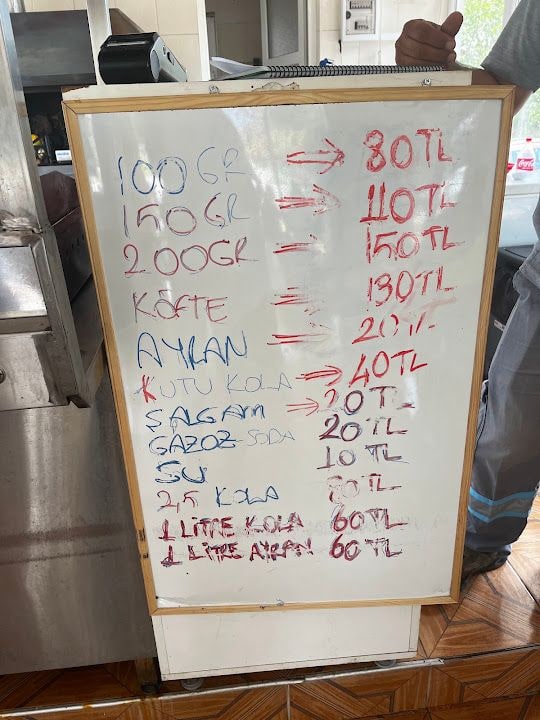 100 GR ⇒ 80 TL
150 GR ⇒ 110 TL
200 GR → 150 TL
KÖFTE → 130 TL
AYRAN → 20 TL
KUTU KOLA → 40 TL
ŞALGAM → 20 TL
GAZOZ-SODA 20 TL
SU 10 TL
2,5 KOLA TL
1 LİTRE KOLA 60 TL
1 LİTRE AYRAN 60 TL